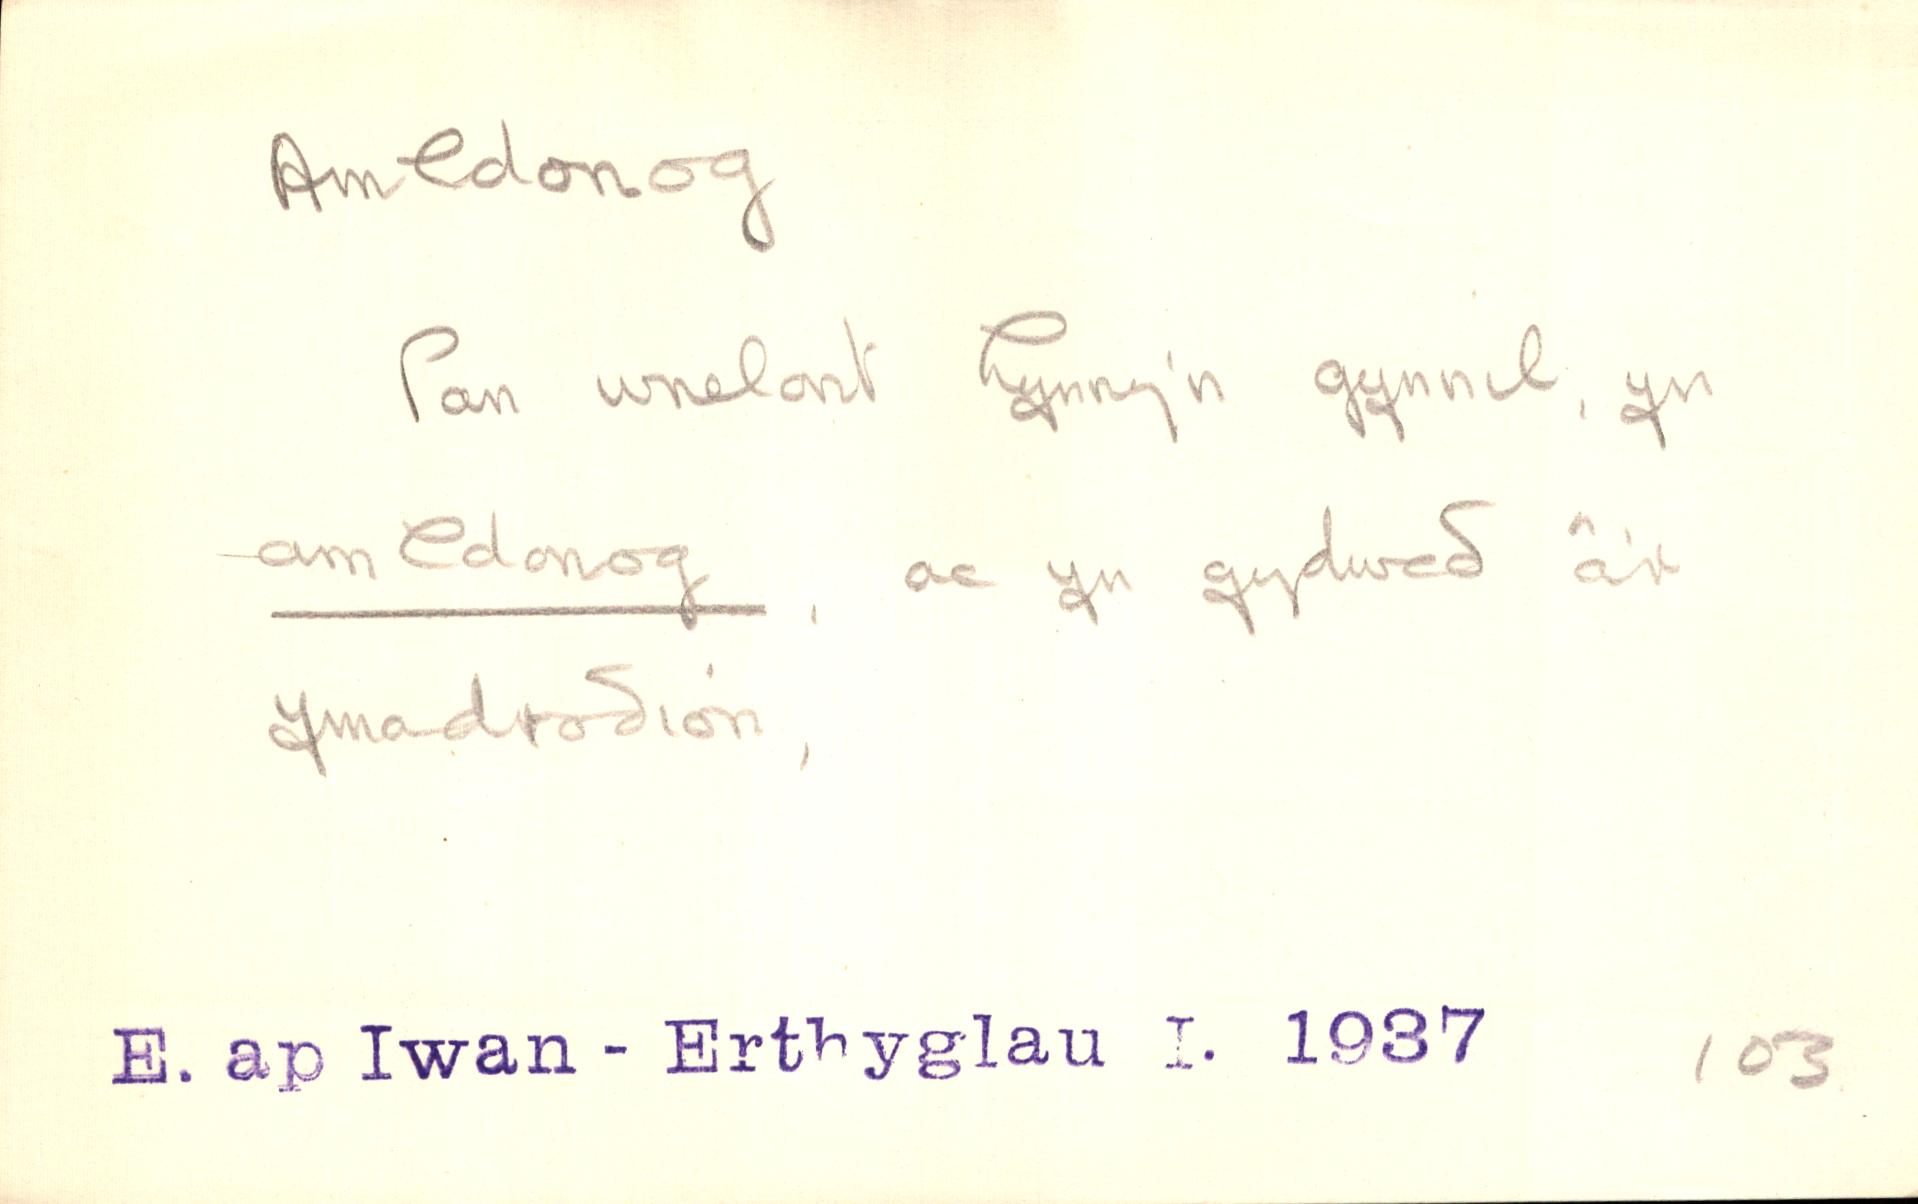 Amldonog
Pan wnelont hynny'n gynnil, yn
amldonog, ac yn gydweδ â'r
ymadroδion,
E. ap Iwan - Erthyglau I. 1937 103